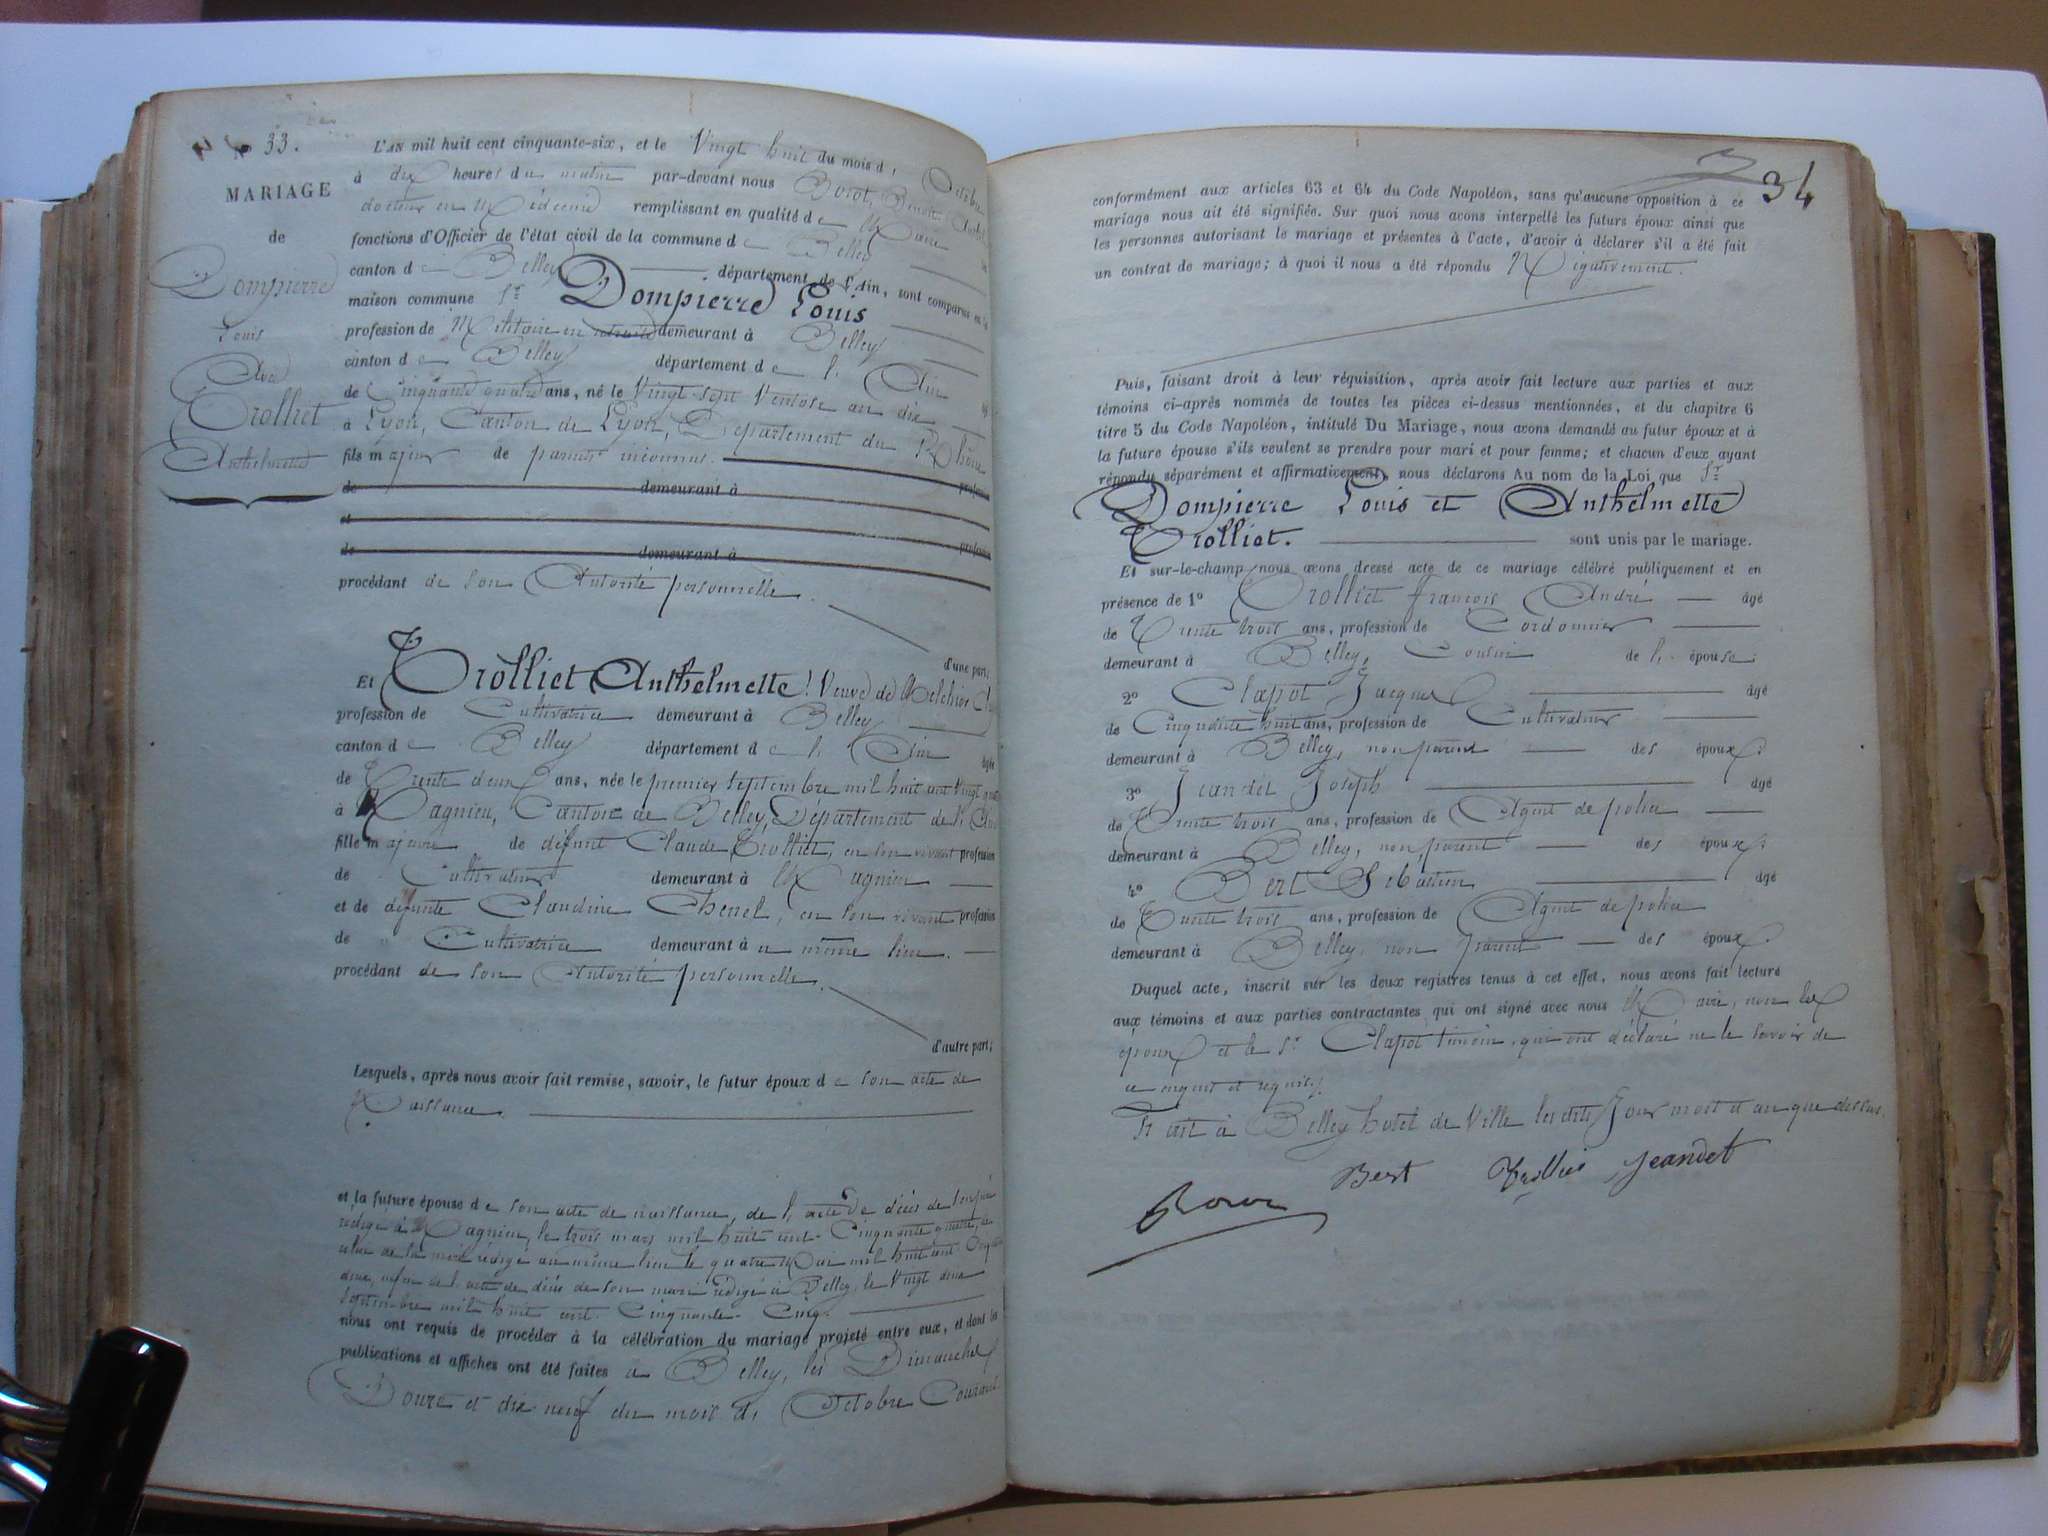 33.
MARIAGE
de
Dompierre
Louis
Avec
Trolliet
Anthelmette
L'AN mil huit cent cinquante-six, et le Vingt huit du mois d' Octobre
à dix heures du matin par-devant nous Borot, Benoit
docteur en Médecine remplissant en qualité de Maire
fonctions d'Officier de l'état civil de la commune de Belley
canton de Belley département de l'Ain, sont comparus en la
maison commune Sr Dompierre Louis
profession de Militaire en retraite demeurant à Belley
canton de Belley département de l'Ain
de Cinquante quatre ans, né le Vingt sept Ventose an dix
à Lyon, Canton de Lyon, Département du Rhône
fils majeur de parents inconnus.
de demeurant à profession
et
de demeurant à profession
procédant de son Autorité personnelle.
d'une part;
Et Trolliet Anthelmette, Veuve de Melchior
profession de Cultivatrice demeurant à Belley
canton de Belley département de l'Ain âgée
de Trente deux ans, née le premier septembre mil huit cent vingt quatre
à Magnieu, Canton de Belley, Département de l'Ain
fille majeure de défunt Claude Trolliet, en son vivant profession
de Cultivateur demeurant à Magnieu
et de défunte Claudine Chenel, en son vivant profession
de Cultivatrice demeurant à u même lieu.
procédant de son Autorité personnelle.
d'autre part;
Lesquels, après nous avoir fait remise, savoir, le futur époux de son acte de
Naissance.
et la future épouse de son acte de naissance, de l'acte de décès de son père
rédigé à Magnieu, le trois mars mil huit cent Cinquante quatre, de
celui de sa mère rédigé au même lieu le quatre Mai mil huit cent
deux, enfin de l'acte de décès de son mari rédigé à Belley, le Vingt deux
septembre mil huit cent Cinquante Cinq.
nous ont requis de procéder à la célébration du mariage projeté entre eux, et dont les
publications et affiches ont été faites à Belley, les Dimanches
Douze et dix neuf du mois d'Octobre Courant
34
conformément aux articles 63 et 64 du Code Napoléon, sans qu'aucune opposition à ce
mariage nous ait été signifiée. Sur quoi nous avons interpellé les futurs époux ainsi que
les personnes autorisant le mariage et présentes à l'acte, d'avoir à déclarer s'il a été fait
un contrat de mariage; à quoi il nous a été répondu Négativement.
Puis, faisant droit à leur réquisition, après avoir fait lecture aux parties et aux
témoins ci-après nommés de toutes les pièces ci-dessus mentionnées, et du chapitre 6
titre 5 du Code Napoléon, intitulé Du Mariage, nous avons demandé au futur époux et à
la future épouse s'ils veulent se prendre pour mari et pour femme; et chacun d'eux ayant
répondu séparément et affirmativement, nous déclarons Au nom de la Loi que Sr
Dompierre Louis et Anthelmette
Trolliet. sont unis par le mariage.
Et sur-le-champ nous avons dressé acte de ce mariage célébré publiquement et en
présence de 1º Trolliet françois André âgé
de Trente trois ans, profession de Cordonnier
demeurant à Belley, Cousin de l'épouse
2º Clapot Jacques âgé
de Cinquante huit ans, profession de Cultivateur
demeurant à Belley, non parent des époux.
3º Jeandet Joseph âgé
de Trente trois ans, profession de Agent de police
demeurant à Belley, non parent des époux.
4º Bert Sebastien âgé
de Trente trois ans, profession de Agent de police
demeurant à Belley, non parent des époux.
Duquel acte, inscrit sur les deux registres tenus à cet effet, nous avons fait lecture
aux témoins et aux parties contractantes qui ont signé avec nous Maire, non les
époux et le Sr Clapot témoin, qui ont déclaré ne le savoir de
ce enquis et requis.
Fait à Belley hotel de Ville lesdits Jour mois et an que dessus.
Bert Trolliet Jeandet